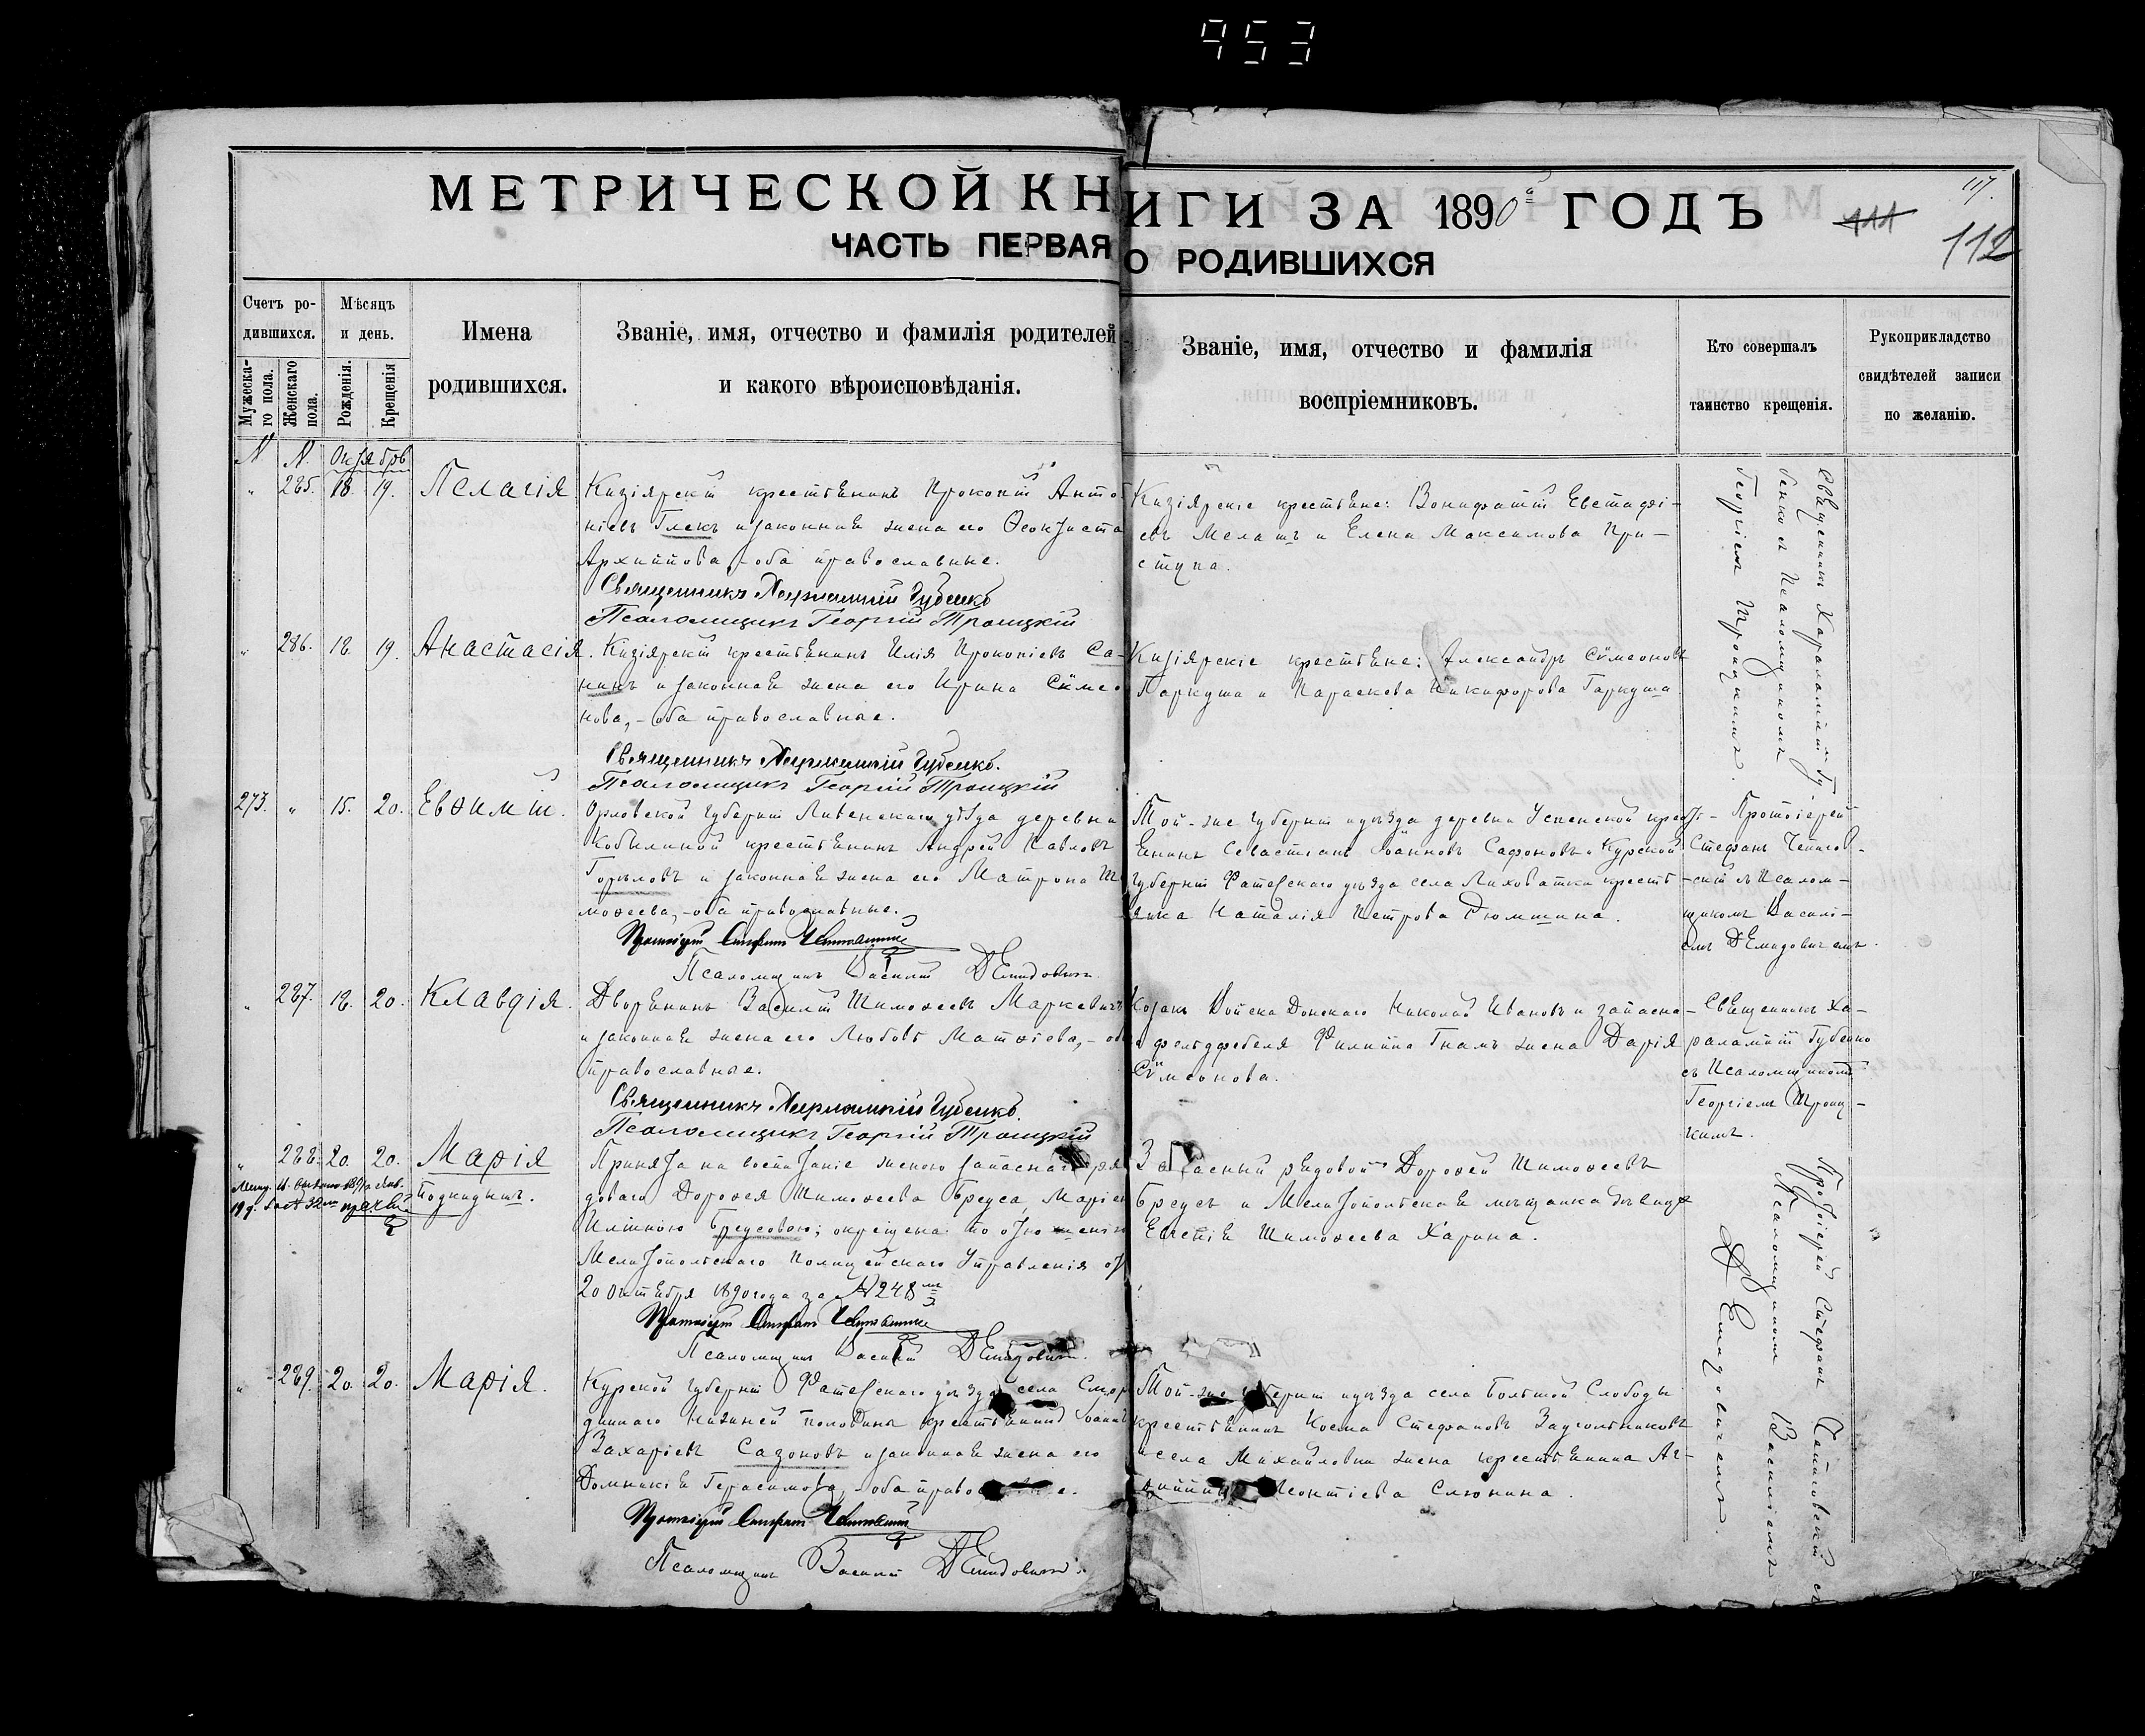 953
МЕТРИЧЕСКОЙ КНИГИ ЗА 1890й ГОДЪ
117.
111
112
ЧАСТЬ ПЕРВАЯ О РОДИВШИХСЯ
Счетъ родившихся.
Мужескаго пола.
Женскаго пола.
Мѣсяцъ и день.
Рожденія.
Крещенія
Имена родившихся.
Званіе, имя, отчество и фамилія родителей
и какого вѣроисповѣданія.
Званіе, имя, отчество и фамилія
воспріемниковъ.
Кто совершалъ
таинство крещенія.
Рукоприкладство
свидѣтелей записи
по желанію.
N N. Октябрь
" 285. 18. 19. Пелагія
Кизіярскій крестьянинъ Прокопій Анто-
ніевъ Глекъ и законная жена его Ѳеоктиста
Архиппова, оба православные.
Священникъ Харлампій Губенко
Псаломщикъ Георгій Троицкій
Кизіярскіе крестьяне: Вонифатій Евстафі-
евъ Мелашъ и Елена Максимова При-
ступа.
Священникъ Харалампій Гу-
бенко съ Псаломщикомъ
Георгіемъ Троицкимъ.
" 286. 18. 19. Анастасія.
Кизіярскій крестьянинъ Илія Прокопіевъ Са-
нинъ и законная жена его Ирина Сѵмео-
нова, - оба православные.
Священникъ Харлампій Губенко.
Псаломщикъ Георгій Троицкій
Кизіярскіе крестьяне: Александръ Сѵмеоновъ
Паркуша и Параскева Никифорова Гаркуша
273. " 15. 20. Евѳимій.
Орловской губерніи Ливенскаго уѣзда деревни
Кобылиной крестьянинъ Андрей Павловъ
Горѣловъ и законная жена его Матрона Ти-
моѳеева, - оба православные.
Протоіерей Стефанъ
Псаломщикъ Василій Демидовичъ
Той-же губерніи и уѣзда деревни Успенской крест-
ьянинъ Севастіанъ Іоанновъ Сафоновъ и Курской
губерніи Фатежскаго уѣзда села Лиховатки кресть-
янка Наталія Петрова Дюмшина.
Протоіерей
Стефанъ
скій съ Псалом-
щикомъ Василі-
емъ Демидовичемъ.
" 287. 18. 20. Клавдія.
Дворянинъ Василій Тимоѳеевъ Маркевичъ
и законная жена его Любовь Матѳіева, - оба
православные.
Священникъ Харлампій Губенко.
Псаломщикъ Георгій Троицкій
Козакъ Войска Донскаго Николай Ивановъ и запасна-
го фельдфебеля Филиппа Гнамъ жена Дарія
Сѵмеонова.
Священникъ Ха-
ралампій Губенко
съ Псаломщикомъ
Георгіемъ Троиц-
кимъ.
" 288. 20. 20. Марія
подкидышъ.
Принята на воспитаніе женою запаснаго ря-
доваго Дороѳея Тимоѳеева Бреуса, Маріею
Иліиною Бреусовою; окрещена по отношенію
Мелитопольскаго Полицейскаго Управленія от
20 октября 1890 года за № 248
Протоіерей Стефанъ
Псаломщикъ Василій Демидовичъ.
Запасный рядовой Дороѳей Тимоѳеевъ
Бреусъ и Мелитопольская мѣщанка дѣвица
Евгенія Тимоѳеева Харина.
Протоіерей Стефанъ
Псаломщикомъ Василіемъ
Демидовичемъ.
" 289. 20. 20. Марія.
Курской губерніи Фатежскаго уѣзда села
Нижней половины крестьянинъ Іоаннъ
Захаріевъ Сазоновъ и законная жена его
Домникія Герасимова, оба
Протоіерей Стефанъ
Псаломщикъ Василій Демидовичъ.
Той-же губерніи и уѣзда села Большой Слободы
крестьянинъ Косма Стефановъ Заугольниковъ
и села Михайловки жена крестьянина Аг-
Леонтіева Слюнина.